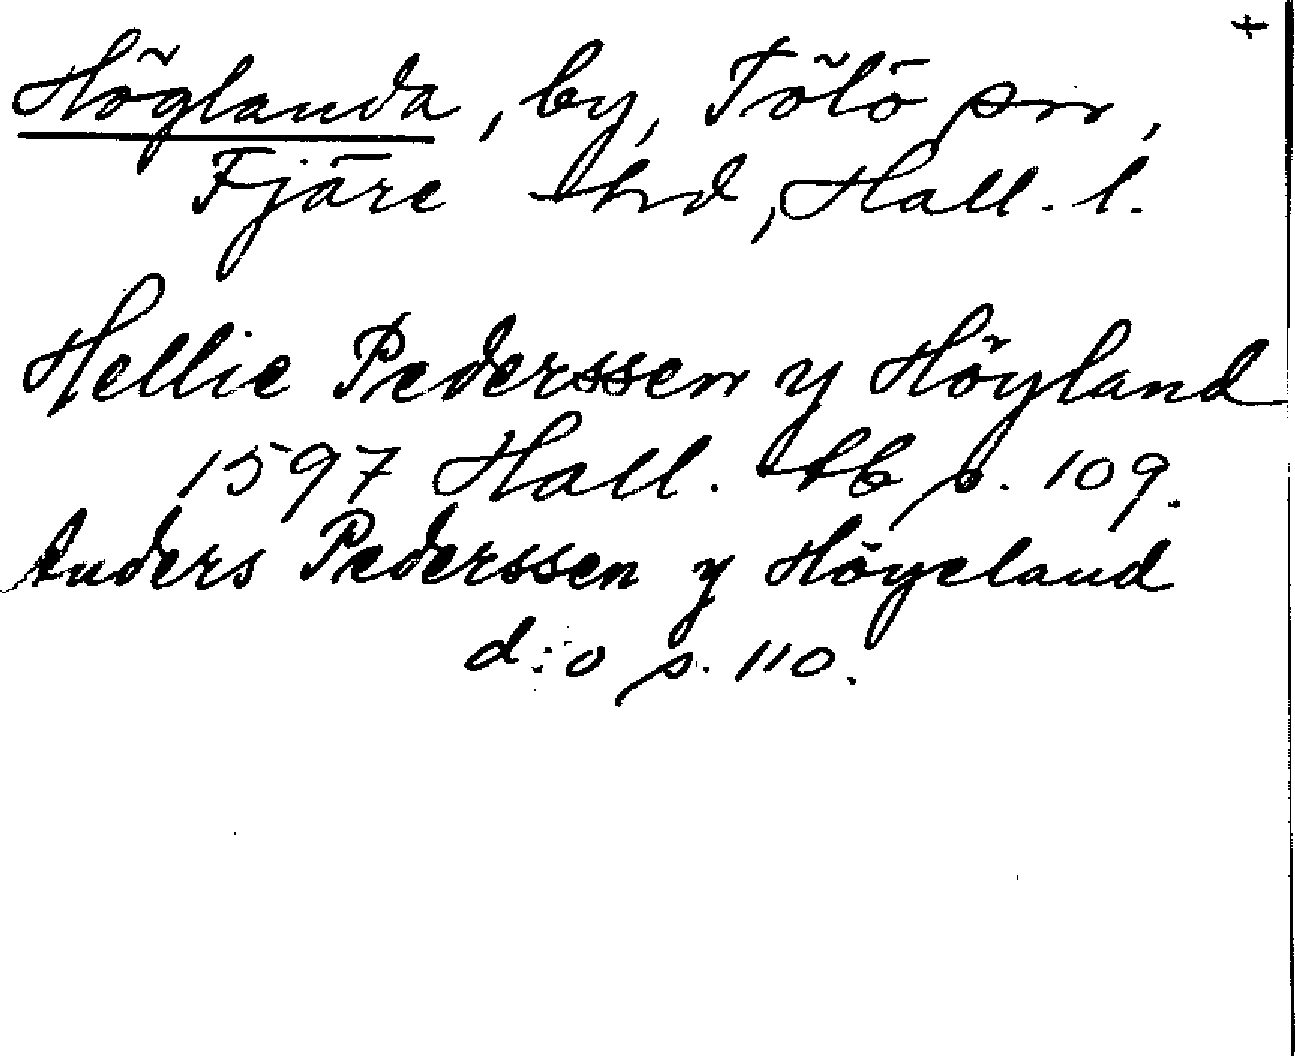 +
Höglanda, by, Tölö sn,
Fjäre hd, Hall. l.
Hellie Pederssen y Höyland
1597 Hall. lb s. 109.
Anders Pederssen y Höyeland
d:o s. 110.